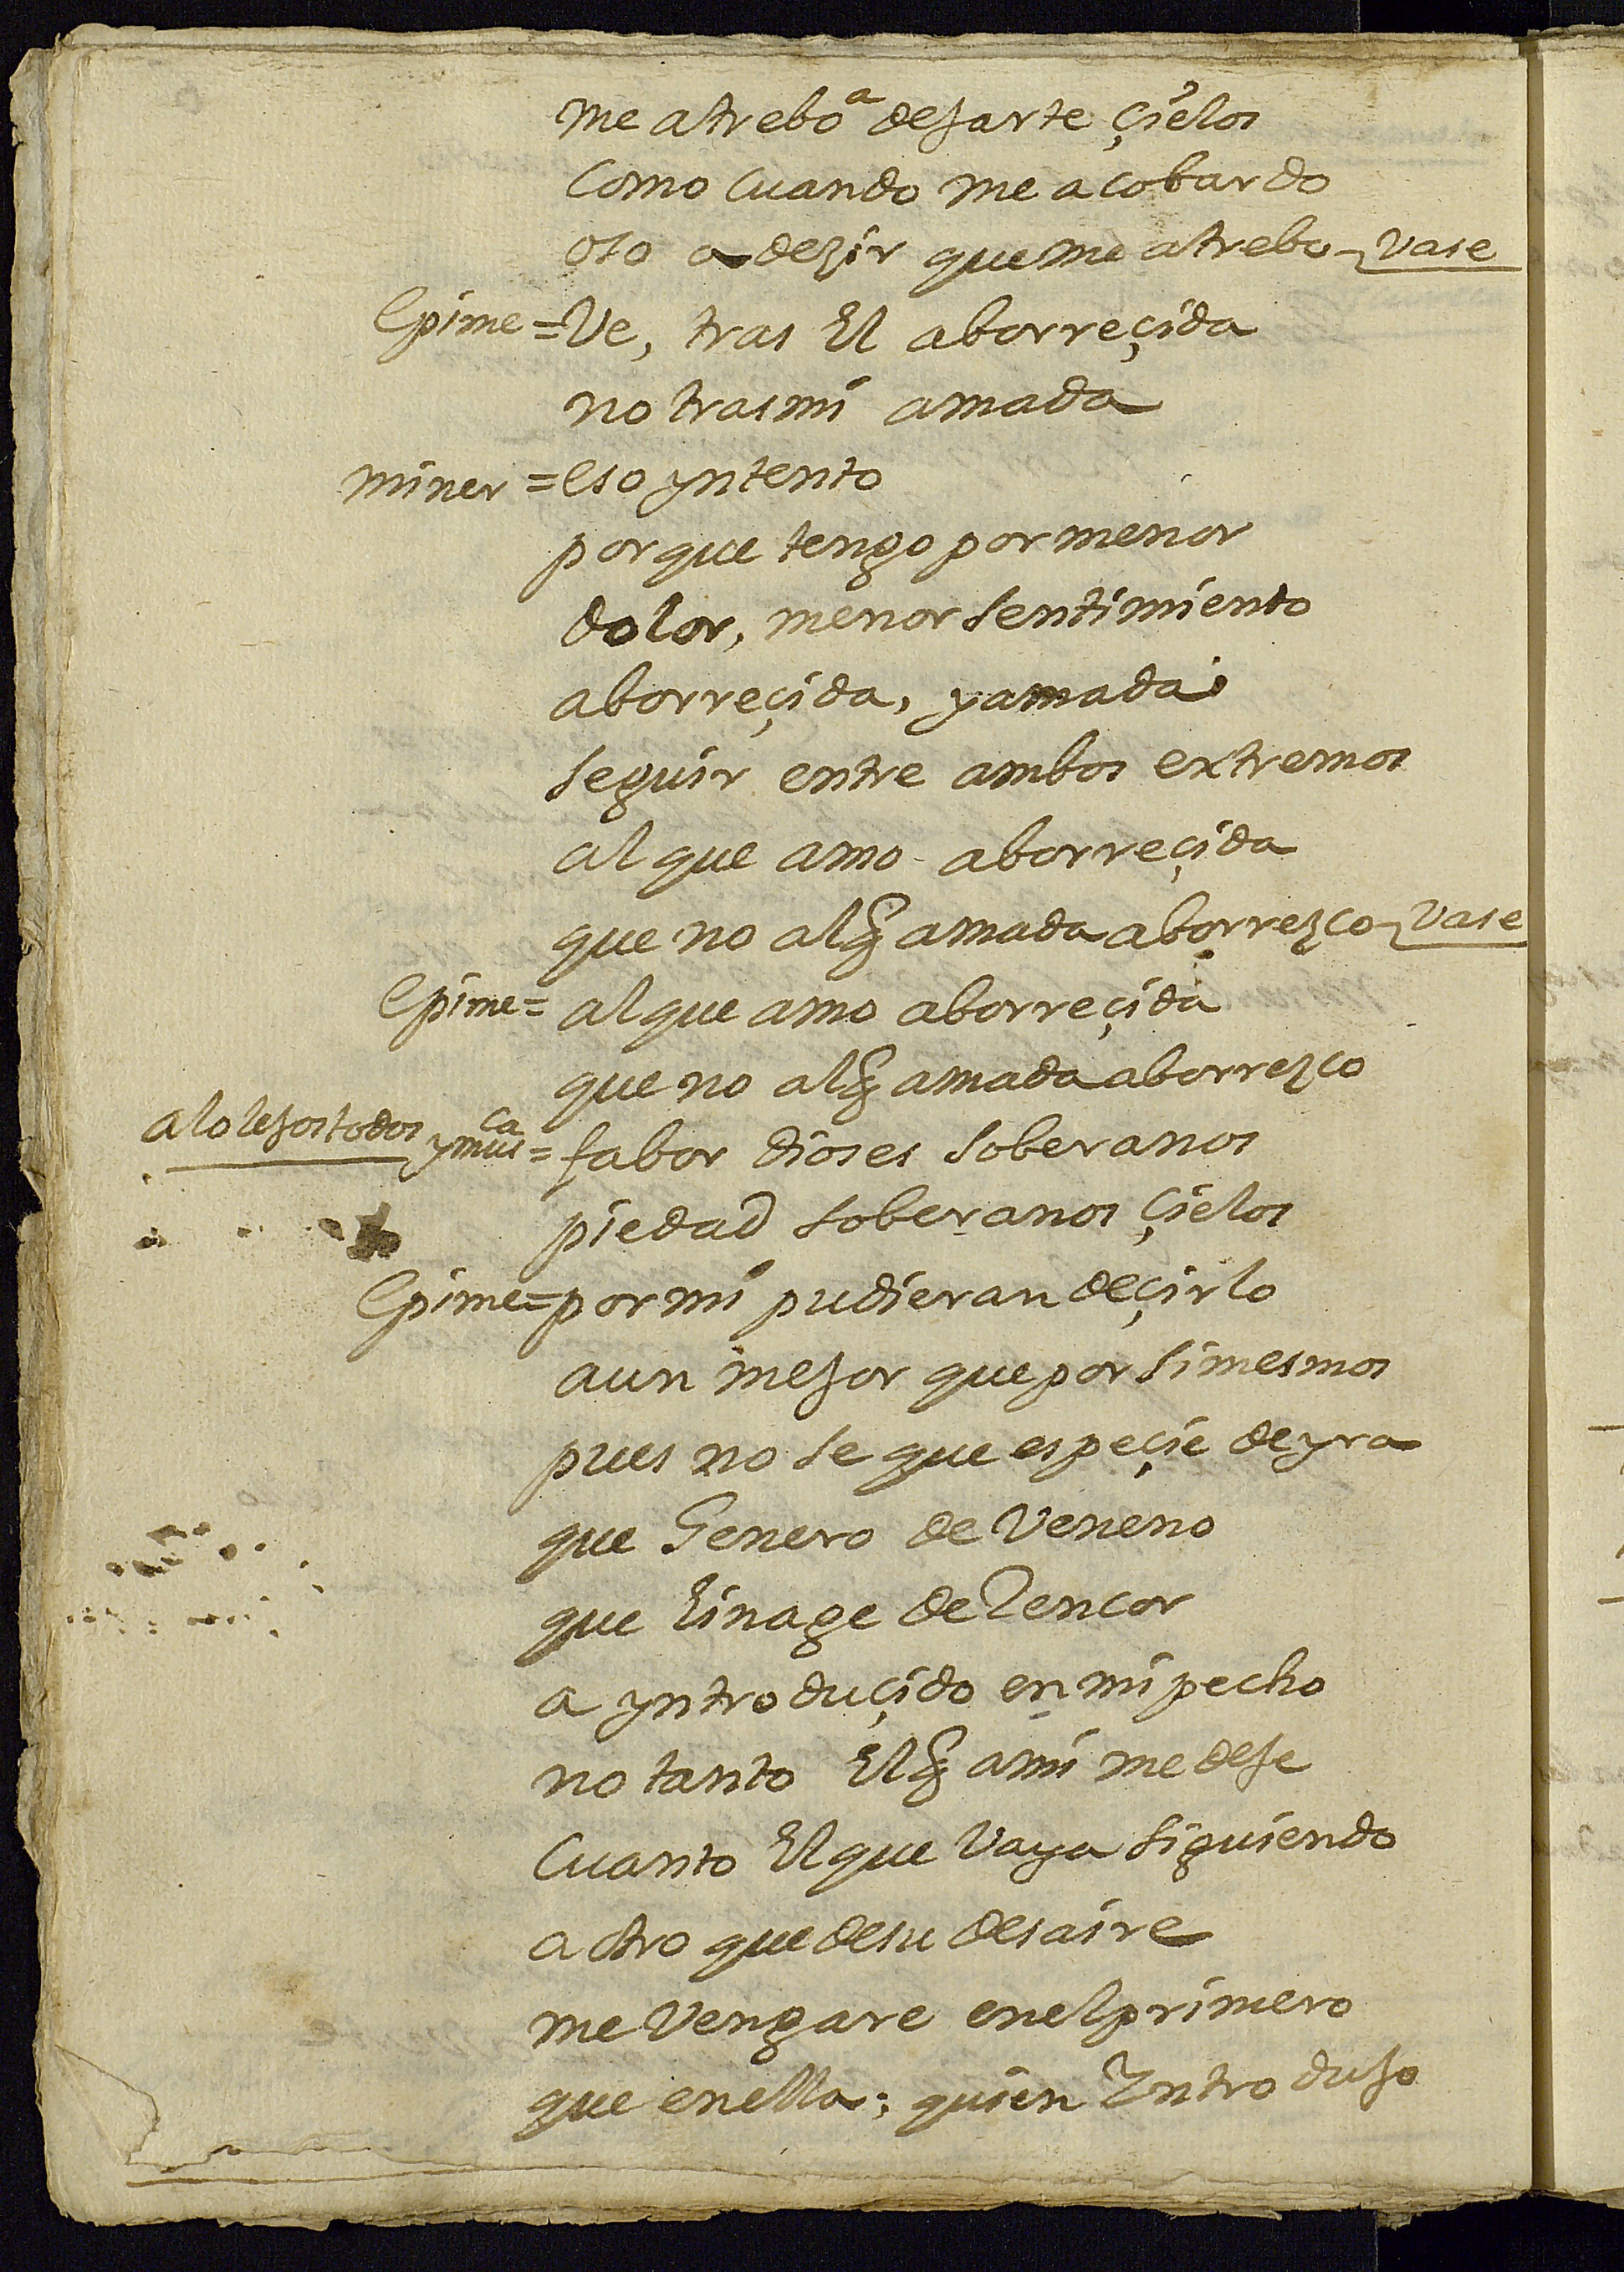 me atrebo a dejarte çielos
como cuando me acobardo
oso a dezir que me atrebo - vase
Epime = Ve, tras El aborreçida
no tras mi amada
miner = eso yntento
porque tengo por menor
dolor, menor sentimiento
aborreçida, y amada
seguir entre ambos extremos
al que amo aborreçida
que no al q amada aborrezco - vase
Epime = al que amo aborreçida
que no al q amada aborrezco
a lo lejos todos y mus ca = fabor dioses soberanos
piedad soberanos çielos
Epime = por mi pudieran deçirlo
aun mejor que por si mesmos
pues no se que espeçie de yra
que Genero de Veneno
que linage de Rencor
a yntroduçido en mi pecho
no tanto El q a mi me deje
Cuanto El que Vaya siguiendo
a otro que de su desaire
me Vengare en el primero
que en ella; quien Introdujo